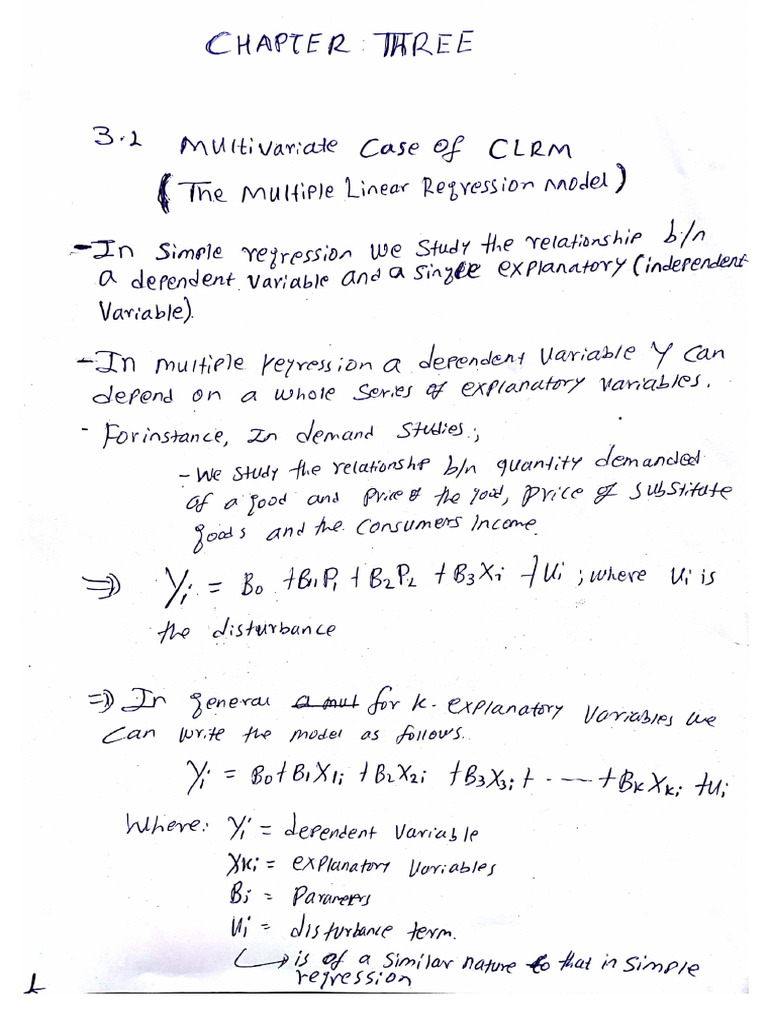 CHAPTER: THREE
3.2 Multivariate Case of CLRM
(The Multiple Linear Regression Model)
- In Simple regression we Study the relationship b/n
a dependent variable and a single explanatory (independent
Variable).
- In multiple regression a dependent Variable Y can
depend on a whole Series of explanatory variables.
- For instance, In demand Studies;
- We study the relationship b/n quantity demanded
of a good and Price of the good, Price of Substitute
goods and the Consumers Income.
⇒ Yi = B0 + B1P1 + B2P2 + B3Xi + Ui ; where Ui is
the disturbance
⇒ In general a mul for k-explanatory Variables we
Can write the model as follows.
Yi = B0 + B1X1i + B2X2i + B3X3i + ----- + BkXki + Ui
Where: Yi = dependent Variable
Xki = explanatory Variables
Bi = Parameters
Ui = disturbance term.
↳ is of a similar nature to that in Simple
regression
1